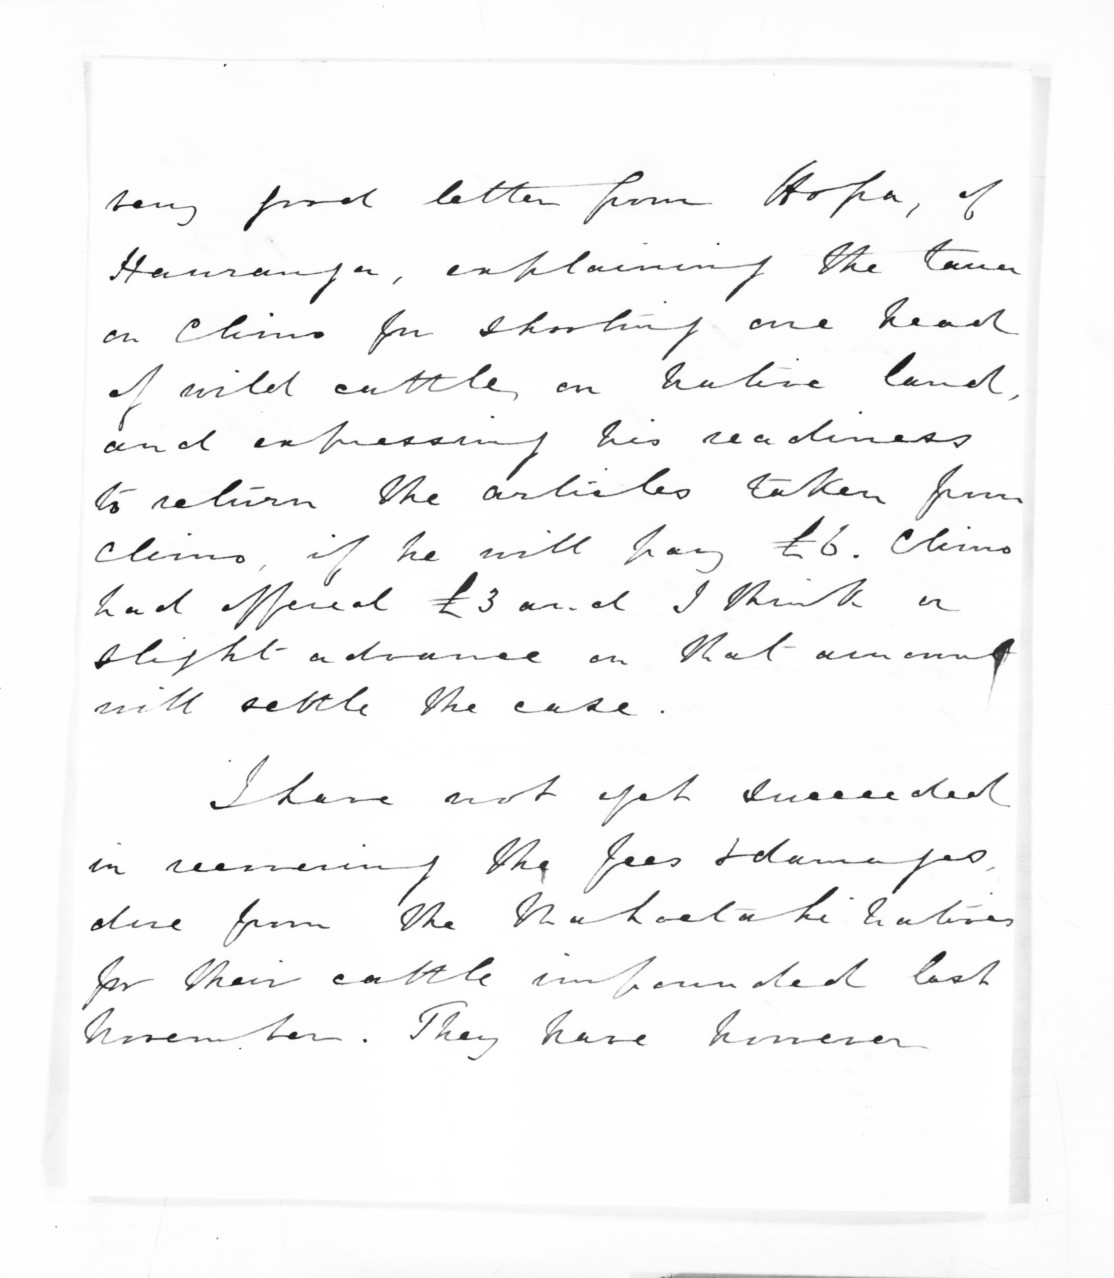 very good letter from Hopa, of
Hauranga, explaining the taua
on Climo for shooting one head
of wild cattle, on Native land,
and expressing his readiness
to return the articles taken from
Climo, if he will pay £6. Climo
had offered £3 and I think a
slight advance on that amount
will settle the case.
I have not yet succeeded
in recovering the fees & damages,
due from the Mahoetahi Natives
for their cattle impounded last
November. They have however